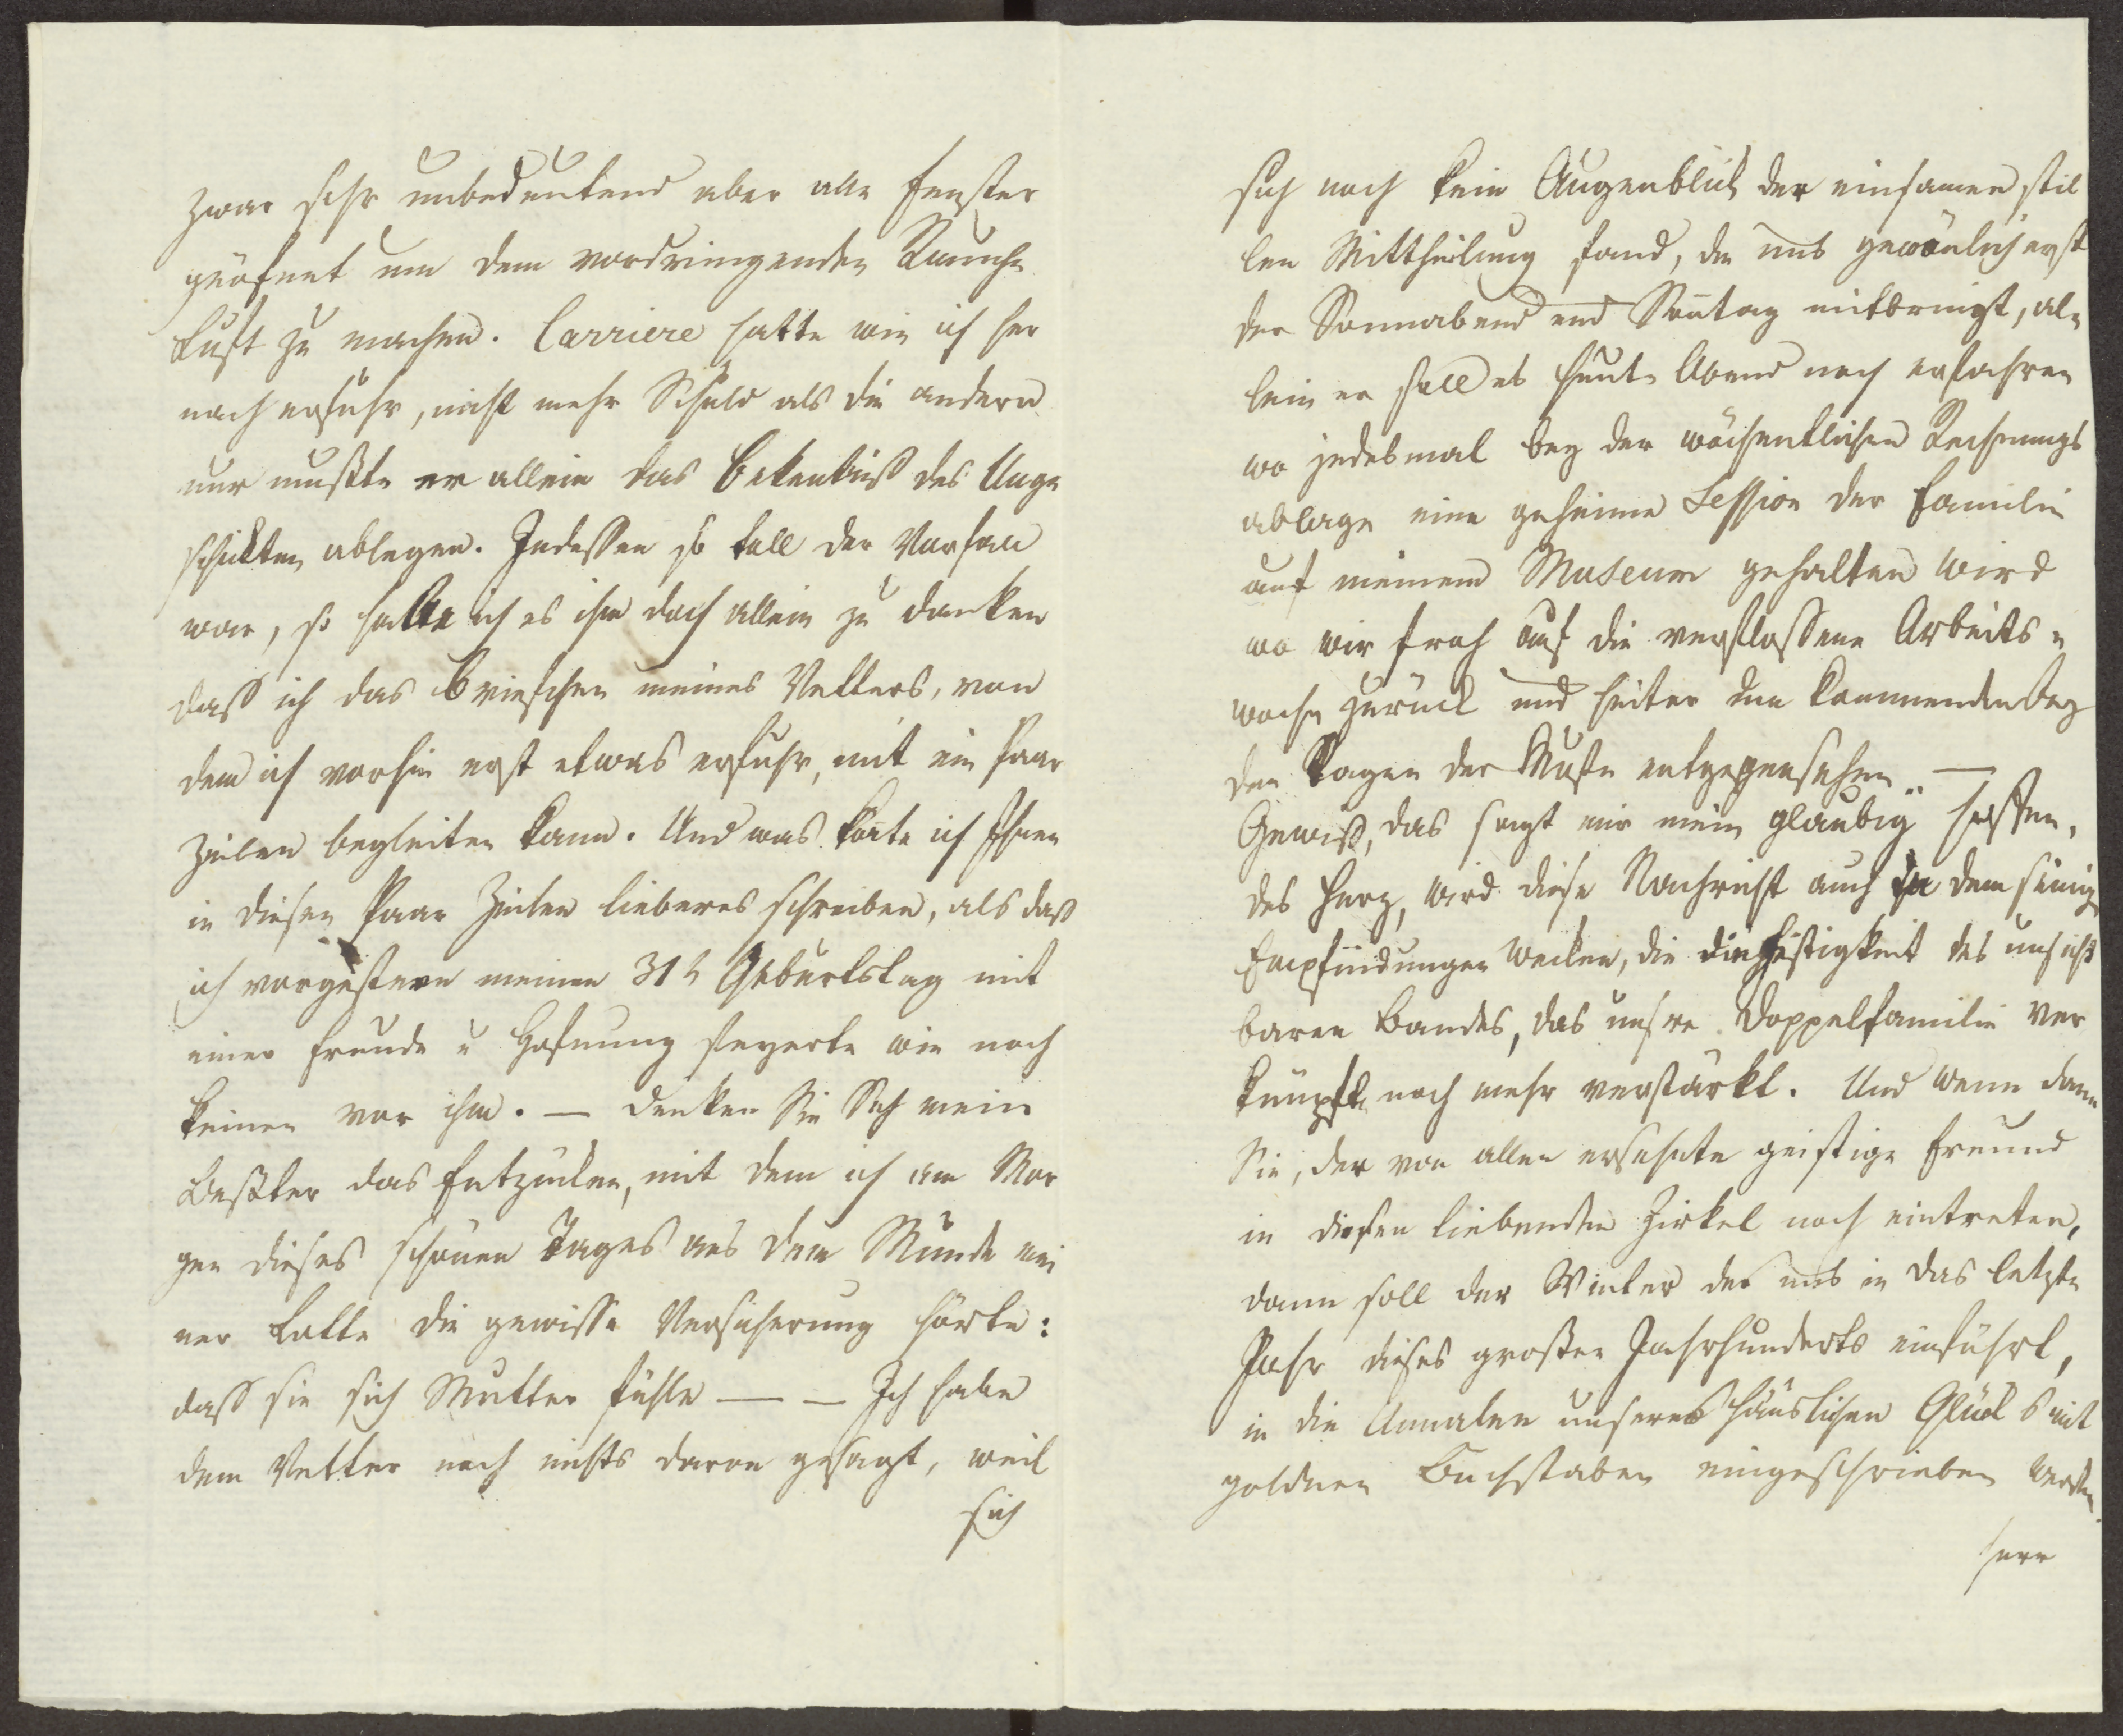 zwar sehr unbedeutend aber alle Fenster
geöfnet um dem vordringenden Rauche
Luft zu machen. Carriere hatte wie ich her
nach erfuhr, nicht mehr Schuld als die andern
nur mußte er allein das Bekentniß des Unge
schikten ablegen. Indessen so toll der Vorfall
war, so hatte ich es ihm doch allein zu danken
dass ich das Briefchen meines Vetters, von
dem ich vorhin erst etwas erfuhr, mit ein Paar
Zeilen begleiten kann. Und was köñte ich Ihnen
in diesen Paar Zeilen lieberes schreiben, als daß
ich vorgestern meinen 31t Geburtstag mit
einer Freude u Hofnung feyerte wie noch
keinen vor ihm. — Denken Sie Sich mein
Beßter das Entzücken, mit dem ich am Mor
gen dieses schönen Tages aus dem Munde mei
ner Lotte die gewisse Versicherung hörte:
dass sie sich Mutter fühle — — Ich habe
dem Vetter noch nichts davon gesagt, weil
sich
sich noch kein Augenblick der einsamen stil
len Mittheilung fand, die uns gewönlich erst
der Sonnabend und Soñtag mitbringt, al-
lein er soll es heute Abend noch erfahren
wo jedesmal bey der wöchentlichen Rechnungs
ablage eine geheime Session der Familie
auf meinem Museum gehalten wird
wo wir froh auf die verflossene Arbeits-
woche zurück und heiter den kommenden bey
den Tagen der Muße entgegensehen —
Gewiß, das sagt mir mein glaubig hoffen,
des Herz, wird diese Nachricht auch in dem seinige
Empfindungen wecken, die die Festigkeit des unsicht
baren Bandes, das unsre Doppelfamilie ver
knüpft, noch mehr verstärkt. Und wenn dann
Sie, der von allen ersehnte geistige Freund
in diesen liebenden Zirkel noch eintreten,
dann soll der Winter der uns in das letzte
Jahr dieses großen Jahrhunderts einführt,
in die Annalen unseres häuslichen Glücks mit
goldnen Buchstaben eingeschrieben werden.